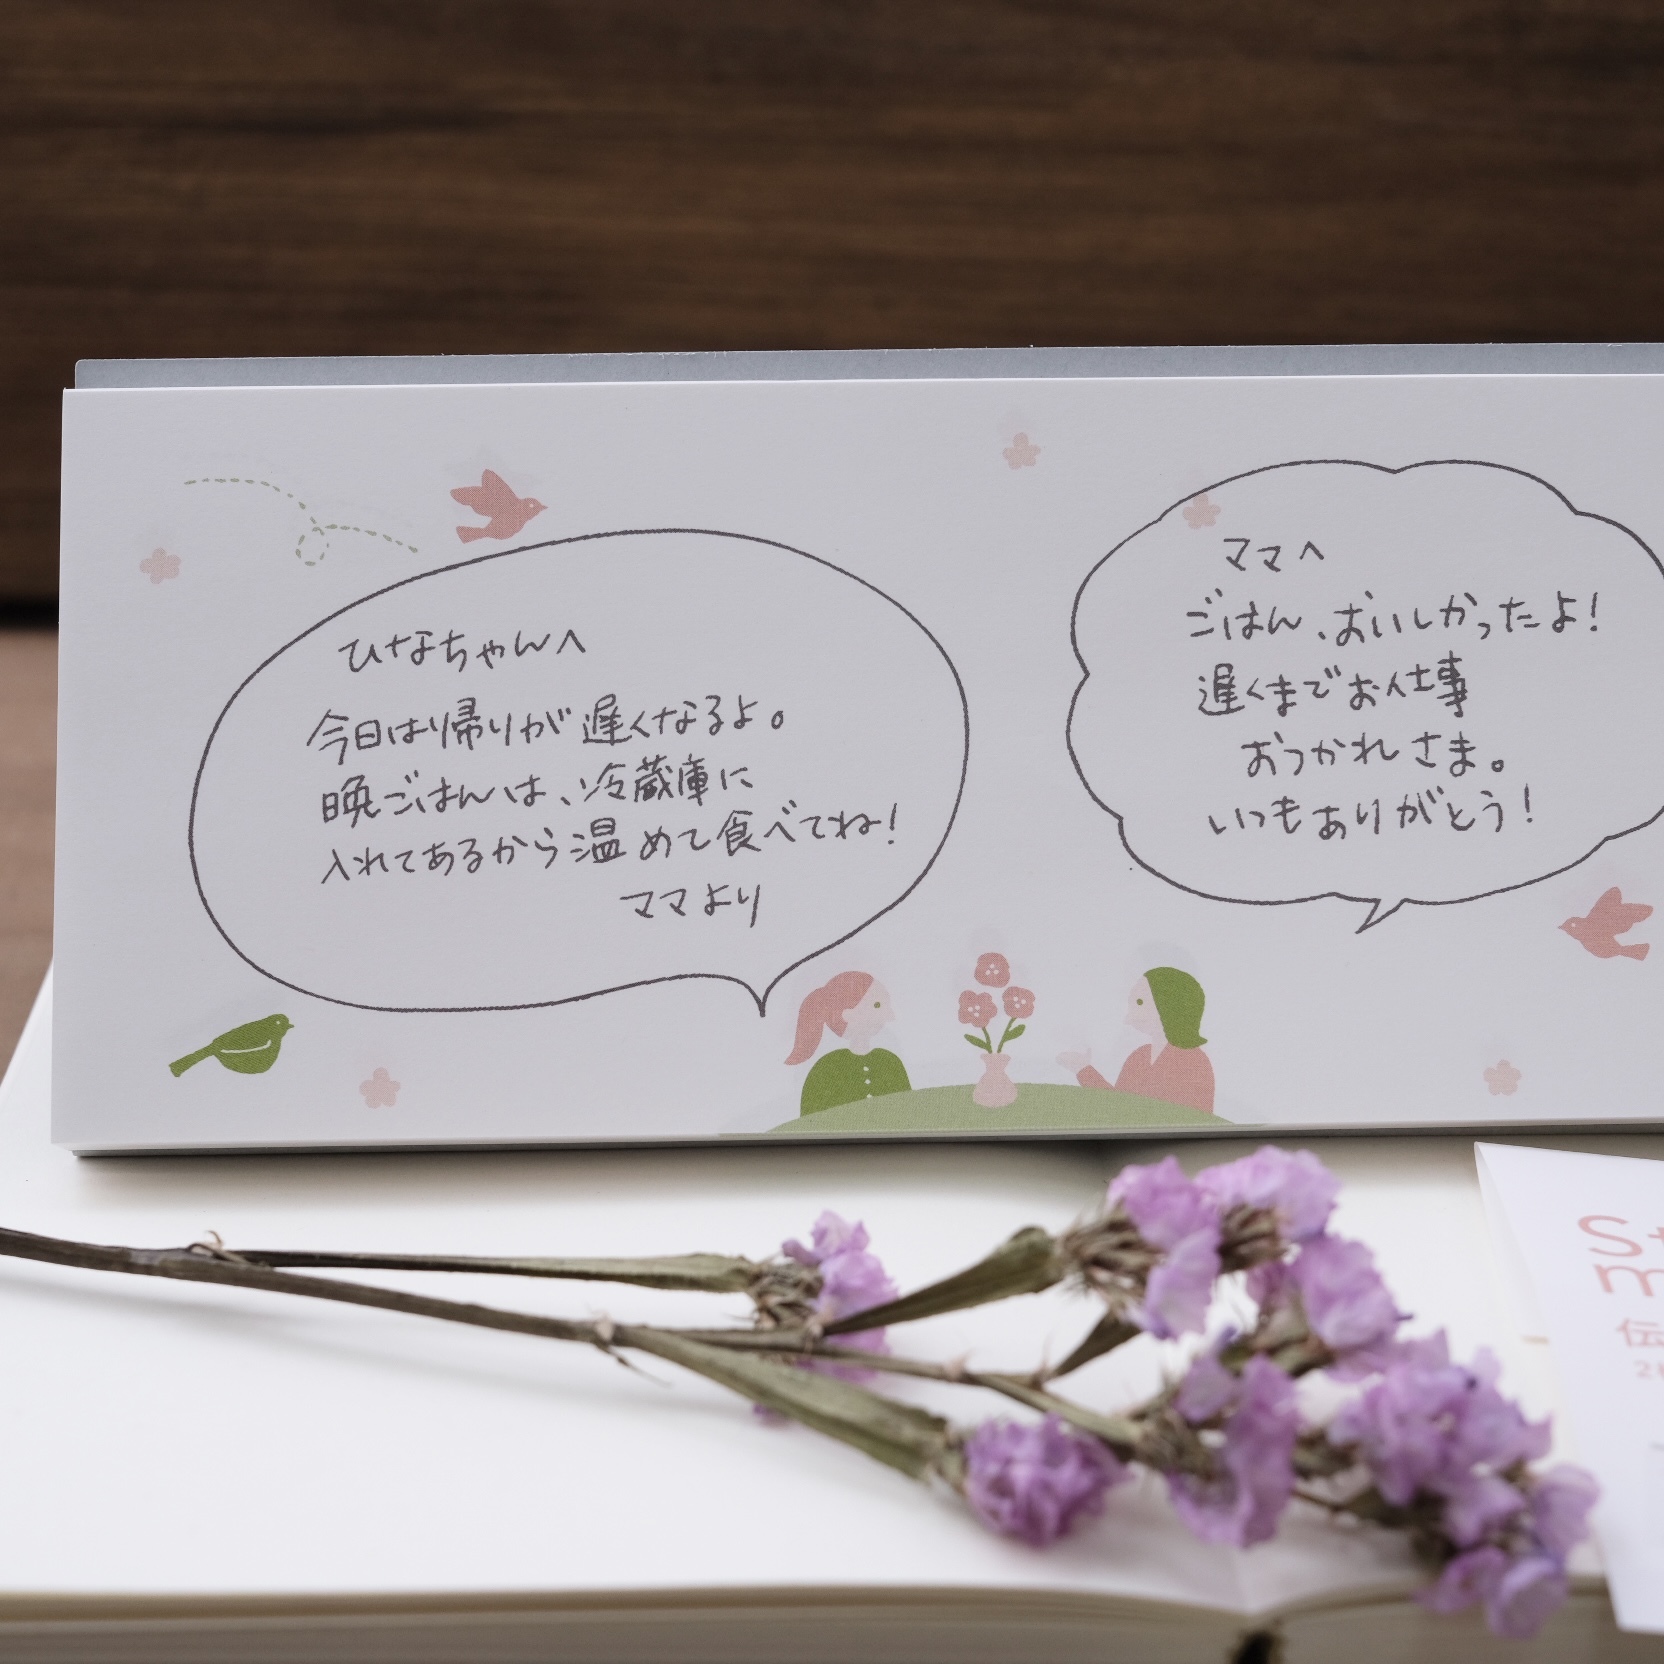 ひなちゃんへ
今日は帰りが遅くなるよ。
晩ごはんは、冷蔵庫に
入れてあるから温めて食べてね!
ママより
ママへ
ごはん、おいしかったよ!
遅くまでお仕事
おつかれさま。
いつもありがとう!
伝